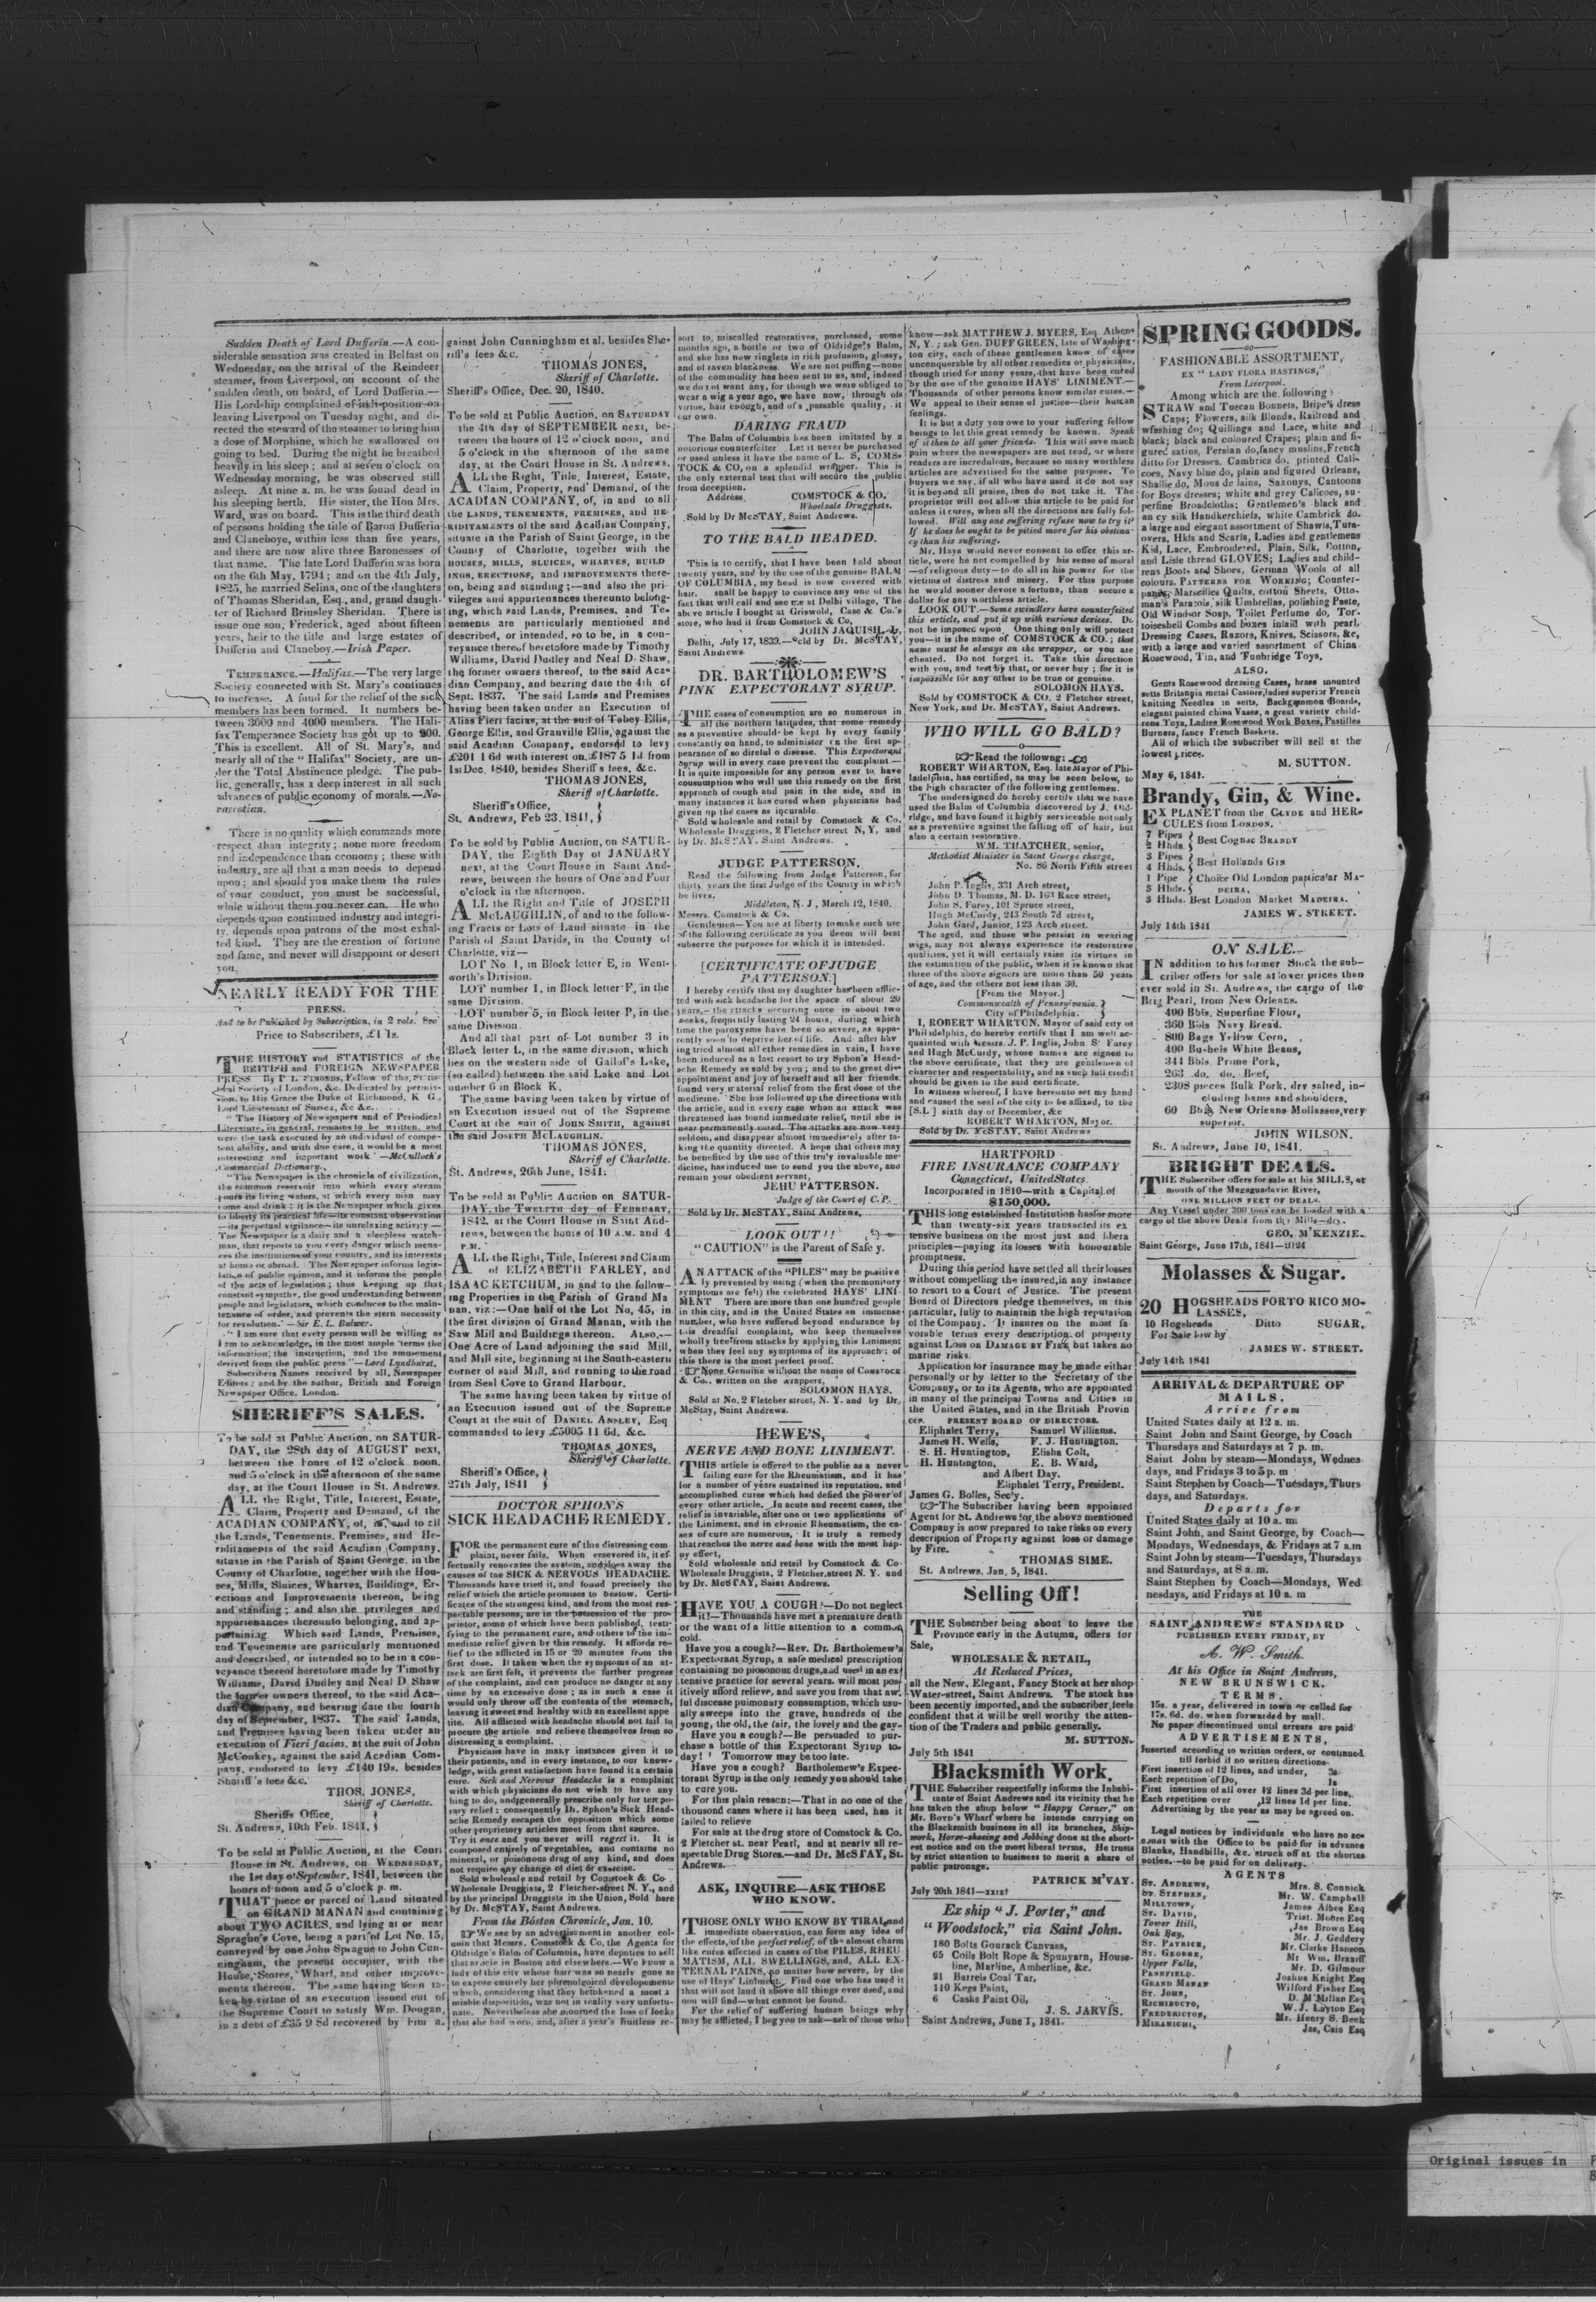 Sudden Death of Lord Dufferin.—A con-
siderable sensation was created in Belfast on
Wednesday, on the arrival of the Reindeer
steamer, from Liverpool, on account of the
sudden death, on board, of Lord Dufferin.—
His Lordship complained of indisposition on
leaving Liverpool on Tuesday night, and di-
rected the steward of the steamer to bring him
a dose of Morphine, which he swallowed on
going to bed. During the night he breathed
heavily in his sleep; and at seven o'clock on
Wednesday morning, he was observed still
asleep. At nine a. m. he was found dead in
his sleeping berth. His sister, the Hon Mrs.
Ward, was on board. This is the third death
of persons holding the title of Baron Dufferin
and Claneboye, within less than five years,
and there are now alive three Baronesses of
that name. The late Lord Dufferin was born
on the 6th May, 1794; and on the 4th July,
1825, he married Selina, one of the daughters
of Thomas Sheridan, Esq., and, grand daugh-
ter of Richard Brinsley Sheridan. There is
issue one son, Frederick, aged about fifteen
years, heir to the title and large estates of
Dufferin and Claneboy.—Irish Paper.
TEMPERANCE.—Halifax.—The very large
Society connected with St. Mary's continues
to increase. A fund for the relief of the sick
members has been formed. It numbers be-
tween 3000 and 4000 members. The Hali-
fax Temperance Society has got up to 900.
This is excellent. All of St. Mary's, and
nearly all of the "Halifax" Society, are un-
der the Total Abstinence pledge. The pub-
lic, generally, has a deep interest in all such
advances of public economy of morals.—No-
vascotian.
There is no quality which commands more
respect than integrity; none more freedom
and independence than economy; these with
industry, are all that a man needs to depend
upon; and should you make them the rules
of your conduct, you must be successful,
while without them you never can. He who
depends upon continued industry and integri-
ty, depends upon patrons of the most exhal-
ted kind. They are the creation of fortune
and fame, and never will disappoint or desert
you.
NEARLY READY FOR THE
PRESS.
And to be Published by Subscription, in 2 vols. 8vo
Price to Subscribers, £1 1s.
THE HISTORY and STATISTICS of the
BRITISH and FOREIGN NEWSPAPER
PRESS By P L SIMONDS, Fellow of the Statis-
tical Society of London, &c. Dedicated by permis-
sion, to His Grace the Duke of Richmond, K G.,
Lord Lieutenant of Sussex, &c &c.
"The History of Newspapers and of Periodical
Literature, in general, remains to be written, and
were the task executed by an individual of compe-
tent ability, and with due care, it would be a most
interesting and important work"—McCulloch's
Commercial Dictionary.
"The Newspaper is the chronicle of civilization,
the common reservoir into which every stream
pours its living waters, at which every man may
come and drink: it is the Newspaper which gives
to liberty its practical life—its constant observation
—its perpetual vigilance—its unrelaxing activity—
The Newspaper is a daily and a sleepless watch-
man, that reports to you every danger which mena-
ces the institutions of your country, and its interests
at home or abroad. The Newspaper informs legis-
lation of public opinion, and it informs the people
of the acts of legislation; thus keeping up that
constant sympathy, the good understanding between
people and legislators, which conduces to the main-
tenance of order, and prevents the stern necessity
for revolution."—Sir E. L. Bulwer.
"I am sure that every person will be willing as
I am to acknowledge, in the most ample terms the
information, the instruction, and the amusement
derived from the public press."—Lord Lyndhurst.
Subscribers Names received by all, Newspaper
Editors; and by the author, British and Foreign
Newspaper Office, London.
SHERIFF'S SALES.
To be sold at Public Auction, on SATUR-
DAY, the 28th day of AUGUST next,
between the hours of 12 o'clock noon,
and 5 o'clock in the afternoon of the same
day, at the Court House in St. Andrews.
ALL the Right, Title, Interest, Estate,
Claim, Property and Demand, of the
ACADIAN COMPANY, of, in, and to all
the Lands, Tenements, Premises, and He-
riditaments of the said Acadian Company,
situate in the Parish of Saint George, in the
County of Charlotte, together with the Hou-
ses, Mills, Sluices, Wharves, Buildings, Er-
ections and Improvements thereon, being
and standing; and also the privileges and
appurtenances thereunto belonging, and ap-
pertaining Which said Lands, Premises,
and Tenements are particularly mentioned
and described, or intended so to be in a con-
veyance thereof heretofore made by Timothy
Williams, David Dudley and Neal D Shaw
the former owners thereof, to the said Aca-
dian Company, and bearing date the fourth
day of September, 1837. The said Lands,
and Premises having been taken under an
execution of Fieri facias, at the suit of John
McConkey, against the said Acadian Com-
pany, endorsed to levy £140 19s. besides
Sheriff's fees &c.
THOS. JONES,
Sheriff of Charlotte.
Sheriffs Office,
St. Andrews, 10th Feb. 1841,
To be sold at Public Auction, at the Court
House in St. Andrews, on WEDNESDAY,
the 1st day of September, 1841, between the
hours of noon and 5 o'clock p. m.
THAT piece or parcel of Land situated
on GRAND MANAN and containing
about TWO ACRES, and lying at or near
Sprague's Cove, being a part of Lot No. 15,
conveyed by one John Sprague to John Cun-
ningham, the present occupier, with the
House, Stores, Wharf, and other improve-
ments thereon. The same having been ta-
ken by virtue of an execution issued out of
the Supreme Court to satisfy Wm. Dougan,
in a debt of £35 9 8d recovered by him a-
gainst John Cunningham et al. besides She-
riff's fees &c.
THOMAS JONES,
Sheriff of Charlotte.
Sheriff's Office, Dec. 20, 1840.
To be sold at Public Auction, on SATURDAY
the 4th day of SEPTEMBER next, be-
tween the hours of 12 o'clock noon, and
5 o'clock in the afternoon of the same
day, at the Court House in St. Andrews,
ALL the Right, Title, Interest, Estate,
Claim, Property, and Demand, of the
ACADIAN COMPANY, of, in and to all
the LANDS, TENEMENTS, PREMISES, and HE-
RIDITAMENTS of the said Acadian Company,
situate in the Parish of Saint George, in the
County of Charlotte, together with the
HOUSES, MILLS, SLUICES, WHARVES, BUILD
INGS, ERECTIONS, and IMPROVEMENTS there-
on, being and standing;—and also the pri-
vileges and appurtenances thereunto belong-
ing, which said Lands, Premises, and Te-
nements are particularly mentioned and
described, or intended, so to be, in a con-
veyance thereof heretofore made by Timothy
Williams, David Dudley and Neal D. Shaw,
the former owners thereof, to the said Aca-
dian Company, and bearing date the 4th of
Sept. 1837. The said Lands and Premises
having been taken under an Execution of
Alias Fieri facias, at the suit of Tobey Ellis,
George Ellis, and Granville Ellis, against the
said Acadian Company, endorsed to levy
£201 1 6d with interest on £187 5 1d from
1st Dec. 1840, besides Sheriff's fees, &c.
THOMAS JONES,
Sheriff of Charlotte.
Sheriff's Office,
St. Andrews, Feb 23, 1841,
To be sold by Public Auction, on SATUR-
DAY, the Eighth Day of JANUARY
next, at the Court House in Saint And-
rews, between the hours of One and Four
o'clock in the afternoon.
ALL the Right and Title of JOSEPH
McLAUGHLIN, of and to the follow-
ing Tracts or Lots of Land situate in the
Parish of Saint Davids, in the County of
Charlotte, viz—
LOT No. 1, in Block letter E, in Went-
worth's Division.
LOT number 1, in Block letter F, in the
same Division.
LOT number 5, in Block letter P, in the
same Division.
And all that part of Lot number 3 in
Block letter L, in the same division, which
lies on the western side of Gallof's Lake,
(so called) between the said Lake and Lot
number 6 in Block K.
The same having been taken by virtue of
an Execution issued out of the Supreme
Court at the suit of JOHN SMITH, against
the said JOSEPH MCLAUGHLIN.
THOMAS JONES,
Sheriff of Charlotte.
St. Andrews, 26th June, 1841.
To be sold at Public Auction on SATUR-
DAY, the TWELFTH day of FEBRUARY,
1842, at the Court House in Saint And-
rews, between the hours of 10 A.M. and 4
P.M.
ALL the Right, Title, Interest and Claim
of ELIZABETH FARLEY, and
ISAAC KETCHUM, in and to the follow-
ing Properties in the Parish of Grand Ma
nan, viz:—One half of the Lot No, 45, in
the first division of Grand Manan, with the
Saw Mill and Buildings thereon. ALSO,—
One Acre of Land adjoining the said Mill,
and Mill site, beginning at the South-eastern
corner of said Mill, and running to the road
from Seal Cove to Grand Harbour.
The same having been taken by virtue of
an Execution issued out of the Supreme
Court at the suit of DANIEL ANSLEY, Esq
commanded to levy £5005 11 6d, &c.
THOMAS JONES,
Sheriff of Charlotte.
Sheriff's Office,
27th July, 1841
DOCTOR SPHON'S
SICK HEADACHE REMEDY.
FOR the permanent cure of this distressing com-
plaint, never fails. When persevered in, it ef-
fectually renovates the system, and does away the
causes of the SICK & NERVOUS HEADACHE.
Thousands have tried it, and found precisely the
relief which the article promises to bestow. Certi-
ficates of the strongest kind, and from the most res-
pectable persons, are in the possession of the pro-
prietor, some of which have been published, testi-
fying to the permanent cure, and others to the im-
mediate relief given by this remedy. It affords re-
lief to the afflicted in 15 or 20 minutes from the
first dose. If taken when the symptoms of an at-
tack are first felt, it prevents the further progress
of the complaint, and can produce no danger at any
time by an excessive dose; as in such a case it
would only throw off the contents of the stomach,
leaving it sweet and healthy with an excellent appe
tite. All afflicted with headache should not fail to
procure the article and relieve themselves from so
distressing a complaint.
Physicians have in many instances given it to
their patients, and in every instance, to our know-
ledge, with great satisfaction have found it a certain
cure. Sick and Nervous Headache is a complaint
with which physicians do not wish to have any
thing to do, and generally prescribe only for tempo-
rary relief: consequently Dr. Sphon's Sick Head-
ache Remedy escapes the opposition which some
other proprietory articles meet from that source.
Try it once and you never will regret it. It is
composed entirely of vegetables, and contains no
mineral, or poisonous drug of any kind, and does
not require any change of diet or exercise.
Sold wholesale and retail by Comstock & Co
Wholesale Druggists, 2 Fletcher-street N. Y., and
by the principal Druggists in the Union, Sold here
by Dr. McSTAY, Saint Andrews.
From the Boston Chronicle, Jan. 10.
We see by an advertisement in another col-
umn that Messrs. Comstock & Co, the Agents for
Oldridge's Balm of Columbia, have deputies to sell
that article in Boston and elsewhere.—We know a
lady of this city whose hair was so nearly gone as
to expose entirely her phrenological developements
which, considering that they betokened a most a
miable disposition, was not in reality very unfortu-
nate. Nevertheless she mourned the loss of locks
that she had worn, and, after a year's fruitless re-
sort to, miscalled restoratives, purchased, some
months ago, a bottle or two of Oldridge's Balm,
and she has now ringlets in rich profusion, glossy,
and of raven blackness. We are not puffing—none
of the commodity has been sent to us, and, indeed
we do not want any, for though we were obliged to
wear a wig a year ago, we have now, through its
virtue, hair enough, and of a passable quality, it
our own.
DARING FRAUD
The Balm of Columbia has been imitated by a
notorious counterfeiter Let it never be purchased
or used unless it have the name of L. S, COMS-
TOCK & CO, on a splendid wrapper. This is
the only external test that will secure the public
from deception.
Address, COMSTOCK & CO.
Wholesale Druggists.
Sold by Dr McSTAY, Saint Andrews.
TO THE BALD HEADED.
This is to certify, that I have been bald about
twenty years, and by the use of the genuine BALM
OF COLUMBIA, my head is now covered with
hair. shall be happy to convince any one of the
fact that will call and see me at Delhi village, The
above article I bought at Griswold, Case & Co.'s
store, who had it from Comstock & Co,
JOHN JAQUISH, Jr,
Delhi, July 17, 1839.—Sold by Dr. McSTAY,
Saint Andrews
DR. BARTHOLOMEW'S
PINK EXPECTORANT SYRUP.
THE cases of consumption are so numerous in
all the northern latitudes, that some remedy
as a preventive should be kept by every family
constantly on hand, to administer on the first ap-
pearance of so direful o disease. This Expectorant
Syrup will in every case prevent the complaint—
It is quite impossible for any person ever to have
consumption who will use this remedy on the first
approach of cough and pain in the side, and in
many instances it has cured when physicians had
given up the cases as incurable.
Sold wholesale and retail by Comstock & Co,
Wholesale Druggists, 2 Fletcher street N, Y, and
by Dr. McSTAY, Saint Andrews.
JUDGE PATTERSON.
Read the following from Judge Patterson, for
thirty years the first Judge of the County in which
he lives.
Middleton, N. J, March 12, 1840.
Messrs. Comstock & Co.
Gentlemen—You are at liberty to make such use
of the following certificate as you deem will best
subserve the purposes for which it is intended.
[CERTIFICATE OF JUDGE
PATTERSON.]
I hereby certify that my daughter has been afflic-
ted with sick headache for the space of about 20
years,—the attacks occurring once in about two
weeks, frequently lasting 24 hours, during which
time the paroxysms have been so severe, as appa-
rently soon to deprive her of life. And after hav
ing tried almost all other remedies in vain, I have
been induced as a last resort to try Sphon's Head-
ache Remedy as sold by you; and to the great dis-
appointment and joy of herself and all her friends,
found very material relief from the first dose of the
medicine. She has followed up the directions with
the article, and in every case when an attack was
threatened has found immediate relief, until she is
near permanently cured. The attacks are now very
seldom, and disappear almost immediately after ta-
king the quantity directed. A hope that others may
be benefited by the use of this truly invaluable me-
dicine, has induced me to send you the above, and
remain your obedient servant,
JEHU PATTERSON.
Judge of the Court of C. P.
Sold by Dr. McSTAY, Saint Andrews,
LOOK OUT!!
"CAUTION" is the Parent of Safe y.
AN ATTACK of the "PILES" may be positive
ly prevented by using (when the premonitory
symptoms are felt) the celebrated HAYS' LINI-
MENT There are more than one hundred people
in this city, and in the United States an immense
number, who have suffered beyond endurance by
this dreadful complaint, who keep themselves
wholly free from attacks by applying this Liniment
when they feel any symptoms of its approach: of
this there is the most perfect proof.
None Genuine without the name of COMSTOCK
& Co., written on the wrappers,
SOLOMON HAYS.
Sold at No, 2 Fletcher street, N. Y. and by Dr,
McStay, Saint Andrews.
HEWE'S,
NERVE AND BONE LINIMENT.
THIS article is offered to the public as a never
failing cure for the Rheumatism, and it has
for a number of years sustained its reputation, and
accomplished cures which had defied the power of
every other article. In acute and recent cases, the
relief is invariable, after one or two applications of
the Liniment, and in chronic Rheumatism, the ca-
ses of cure are numerous. It is truly a remedy
that reaches the nerve and bone with the most hap-
py effect,
Sold wholesale and retail by Comstock & Co-
Wholesale Druggists, 2 Fletcher street N. Y. and
by Dr. McSTAY, Saint Andrews.
HAVE YOU A COUGH?—Do not neglect
it!—Thousands have met a premature death
or the want of a little attention to a common
cold.
Have you a cough?—Rev. Dr. Bartholemew's
Expectorant Syrup, a safe medical prescription
containing no piosonous drugs, and used in an ex
tensive practice for several years, will most pos
itively afford relieve, and save you from that aw.
ful disease pulmonary consumption, which usu-
ally sweeps into the grave, hundreds of the
young, the old, the fair, the lovely and the gay-
Have you a cough?—Be persuaded to pur-
chase a bottle of this Expectorant Syrup to-
day!! Tomorrow may be too late.
Have you a cough? Bartholemew's Expec-
torant Syrup is the only remedy you should take
to cure you.
For this plain reason:—That in no one of the
thousand cases where it has been used, has it
failed to relieve
For sale at the drug store of Comstock & Co.
2 Fletcher st. near Pearl, and at nearly all re-
spectable Drug Stores.—and Dr. McSTAY, St.
Andrews.
ASK, INQUIRE—ASK THOSE
WHO KNOW.
THOSE ONLY WHO KNOW BY TIRAL, and
immediate observation, can form any idea of
the effects, of the perfect relief, of the almost charm
like cures effected in cases of the PILES, RHEU
MATISM, ALL SWELLINGS, and, ALL EX-
TERNAL PAINS, no matter how severe, by the
use of Hays' Liniment. Find one who has used it
that will not laud it above all things ever used, and
you will find—what cannot be found.
For the relief of suffering human beings why
may be afflicted, I beg you to ask—ask of those who
know—ask MATTHEW J. MYERS, Esq. Athens
N. Y.; ask Gen. DUFF GREEN, late of Washing-
ton city, each of these gentlemen know of cases
unconquerable by all other remedies or physicians,
though tried for many years, that have been cured
by the use of the genuine HAYS' LINIMENT.—
Thousands of other persons know similar cures.—
We appeal to their sense of justice—their human
feelings.
It is but a duty you owe to your suffering fellow
beings to let this great remedy be known. Speak
of it then to all your friends. This will save much
pain where the newspapers are not read, or where
readers are incredulous, because so many worthless
articles are advertised for the same purpose. To
buyers we say, if all who have used it do not say
it is beyond all praise, then do not take it. The
proprietor will not allow this article to be paid for
unless it cures, when all the directions are fully fol-
lowed. Will any one suffering refuse now to try it?
If he does he ought to be pitied more for his obstina-
cy than his suffering.
Mr. Hays would never consent to offer this ar-
ticle, were he not compelled by his sense of moral
—of religious duty—to do all in his power for the
victims of distress and misery. For this purpose
he would sooner devote a fortune, than secure a
dollar for any worthless article.
LOOK OUT.—Some swindlers have counterfeited
this article, and put it up with various devices. Do
not be imposed upon. One thing only will protect
you—it is the name of COMSTOCK & CO.; that
name must be always on the wrapper, or you are
cheated. Do not forget it. Take this direction
with you, and test by that, or never buy; for it is
impossible for any other to be true or genuine.
SOLOMON HAYS.
Sold by COMSTOCK & CO. 2 Fletcher street,
New York, and Dr. McSTAY, Saint Andrews.
WHO WILL GO BALD?
Read the followng:
ROBERT WHARTON, Esq. late Mayor of Phi-
ladelphia, has certified, as may be seen below, to
the high character of the following gentlemen.
The undersigned do hereby certify that we have
used the Balm of Columbia discovered by J. Old-
ridge, and have found it highly serviceable not only
as a preventive against the falling off of hair, but
also a certain restorative.
WM. THATCHER, senior,
Methodist Minister in Saint George charge,
No. 86 North Fifth street
John P. Inglis, 331 Arch street,
John D. Thomas, M. D. 163 Race street,
John S. Furey, 101 Spruce street,
Hugh McCurdy, 243 South 7d street,
John Gard, Junior, 123 Arch street.
The aged, and those who persist in wearing
wigs, may not always experience its restorative
qualities, yet it will certainly raise its virtues in
the estimation of the public, when it is known that
three of the above signers are more than 50 years
of age, and the others not less than 30.
[From the Mayor.]
Commonwealth of Pennsylvania.
City of Philadelphia.
I, ROBERT WHARTON, Mayor of said city of
Philadelphia, do hereby certify that I am well ac-
quainted with Messrs. J. P. Inglis, John S. Furey
and Hugh McCurdy, whose names are signed to
the above certificate, that they are gentlemen of
character and respectability, and as such full credit
should be given to the said certificate.
In witness whereof, I have hereunto set my hand
and caused the seal of the city to be affixed, to the
[S.L] sixth day of December, &c
ROBERT WHARTON, Mayor.
Sold by Dr. McSTAY, Saint Andrews
HARTFORD
FIRE INSURANCE COMPANY
Connecticut, United States.
Incorporated in 1810—with a Capital of
$150,000.
THIS long established Institution has for more
than twenty-six years transacted its ex
tensive business on the most just and libera
principles—paying its losses with honourable
promptness.
During this period have settled all their losses
without compelling the insured, in any instance
to resort to a Court of Justice. The present
Board of Directors pledge themselves, in this
particular, fully to maintain the high reputation
of the Company. It insures on the most fa-
vorable terms every description of property
against LOSS OR DAMAGE BY FIRE, but takes no
marine risks.
Application for insurance may be made either
personally or by letter to the Secretary of the
Company, or to its Agents, who are appointed
in many of the principal Towns and Cities in
the United States, and in the British Provin
ces. PRESENT BOARD OF DIRECTORS.
Eliphalet Terry, Samuel Williams.
James H. Wells, F. J. Huntington.
S. H. Huntington, Elisha Colt,
H. Huntington, E. B. Ward,
and Albert Day.
Eliphalet Terry, President.
James G. Bolles, Sec'y.
The Subscriber having been appointed
Agent for St. Andrews for the above mentioned
Company is now prepared to take risks on every
description of Property against loss or damage
by Fire.
THOMAS SIME.
St. Andrews, Jan, 5, 1841.
Selling Off!
THE Subscriber being about to leave the
Province early in the Autumn, offers for
Sale,
WHOLESALE & RETAIL,
At Reduced Prices,
all the New, Elegant, Fancy Stock at her shop
Water-street, Saint Andrews. The stock has
been recently imported, and the subscriber feels
confident that it will be well worthy the atten-
tion of the Traders and public generally.
M. SUTTON.
July 5th 1841
Blacksmith Work.
THE Subscriber respectfully informs the Inhabi-
tants of Saint Andrews and its vicinity that he
has taken the shop below "Happy Corner," on
Mr. Boyd's Wharf where he intends carrying on
the Blacksmith business in all its branches, Ship-
work, Horse-shoeing and Jobbing done at the short-
est notice and on the most liberal terms, He trusts
by strict attention to business to merit a share of
public patronage.
PATRICK M'VAY.
July 20th 1841—xxixt
Ex ship "J. Porter," and
"Woodstock," via Saint John.
180 Bolts Gourack Canvass,
65 Coils Bolt Rope & Spunyarn, House-
line, Marline, Amberline, &c.
21 Barrels Coal Tar,
110 Kegs Paint,
6 Casks Paint Oil,
J. S. JARVIS.
Saint Andrews, June 1, 1841.
SPRING GOODS.
FASHIONABLE ASSORTMENT,
EX "LADY FLORA HASTINGS,"
From Liverpool.
Among which are the following:
STRAW and Tuscan Bonnets, Bride's dress
Caps; Flowers, silk Blonds, Railroad and
washing do; Quillings and Lace, white and
black; black and coloured Crapes; plain and fi-
gured satins, Persian do, fancy muslins, French
ditto for Dresses. Cambrics do, printed Cali-
coes, Navy blue do, plain and figured Orleans,
Shallie do, Mous de lains, Saxonys, Cantoons
for Boys dresses; white and grey Calicoes, su-
perfine Broadcloths; Gentlemen's black and
an cy silk Handkerchiefs, white Cambrick do.
a large and elegant assortment of Shawls, Turn-
overs, Hkfs and Scarfs, Ladies and gentlemens
Kid, Lace, Embroidered, Plain, Silk, Cotton,
and Lisle thread GLOVES; Ladies and child-
rens Boots and Shoes, German Wools of all
colours. PATTERNS FOR WORKING; Counter-
panes, Marseilles Quilts, cotton Sheets, Otto-
man's Parasols, silk Umbrellas, polishing Paste,
Old Windsor Soap, Toilet Perfume do, Tor-
toiseshell Combs and boxes inlaid with pearl,
Dressing Cases, Razors, Knives, Scissors, &c,
with a large and varied assortment of China
Rosewood, Tin, and Tunbridge Toys,
ALSO.
Gents Rosewood dressing Cases, brass mounted
setts Britannia metal Castors, ladies superior French
knitting Needles in setts, Backgammon Boards,
elegant painted china Vases, a great variety child-
rens Toys, Ladies Rosewood Work Boxes, Pastilles
Burners, fancy French Baskets.
All of which the subscriber will sell at the
lowest prices.
M. SUTTON.
May 6, 1841.
Brandy, Gin, & Wine.
EX PLANET from the CLYDE and HER-
CULES from LONDON.
7 Pipes
2 Hhds. Best COGNAC BRANDY
3 Pipes
4 Hhds. Best Hollands GIN
1 Pipe
3 Hhds. Choice Old London particular MA-
DEIRA.
3 Hhds. Best London Market MADEIRA.
JAMES W. STREET.
July 14th 1841
ON SALE.
IN addition to his former Stock the sub-
criber offers for sale at lower prices then
ever sold in St. Andrews, the cargo of the
Brig Pearl, from New Orleans.
400 Bbls. Superfine Flour,
360 Bbls Navy Bread.
800 Bags Yellow Corn,
400 Bushels White Beans,
344 Bbls. Prime Pork,
263 do. do. Beef,
2308 pieces Bulk Pork, dry salted, in-
cluding hams and shoulders,
60 Bbls New Orleans Mollasses, very
superior.
JOHN WILSON.
St. Andrews, June 10, 1841.
BRIGHT DEALS.
THE Subscriber offers for sale at his MILLS, at
mouth of the Magaguadavic River,
ONE MILLION FEET OF DEALS.
Any Vessel under 300 tons can be loaded with a
cargo of the above Deals from the Mills—dry.
GEO. M'KENZIE.
Saint George, June 17th, 1841—tf24
Molasses & Sugar.
20 HOGSHEADS PORTO RICO MO-
LASSES,
10 Hogsheads Ditto SUGAR,
For Sale low by
JAMES W. STREET.
July 14th 1841
ARRIVAL & DEPARTURE OF
MAILS.
Arrive from
United States daily at 12 a. m.
Saint John and Saint George, by Coach
Thursdays and Saturdays at 7 p. m.
Saint John by steam—Mondays, Wednes-
days, and Fridays 3 to 5 p. m
Saint Stephen by Coach—Tuesdays, Thurs
days, and Saturdays.
Departs for
United States daily at 10 a. m.
Saint John, and Saint George, by Coach—
Mondays, Wednesdays, & Fridays at 7 a.m
Saint John by steam—Tuesdays, Thursdays
and Saturdays, at 8 a. m.
Saint Stephen by Coach—Mondays, Wed
nesdays, and Fridays at 10 a. m
THE
SAINT ANDREWS STANDARD
PUBLISHED EVERY FRIDAY, BY
A. W. Smith.
At his Office in Saint Andrews,
NEW BRUNSWICK.
TERMS.
15s. a year, delivered in town or called for
17s. 6d. do. when forwarded by mail.
No paper discontinued until arrears are paid
ADVERTISEMENTS,
Inserted according to written orders, or continued
till forbid if no written directions.
First insertion of 12 lines, and under, 3s
Each repetition of Do, 1s
First insertion of all over 12 lines 3d per line,
Each repetition over 12 lines 1d per line.
Advertising by the year as may be agreed on.
Legal notices by individuals who have no ac-
count with the Office to be paid for in advance
Blanks, Handbills, &c. struck off at the shortes
notice.—to be paid for on delivery.
AGENTS
ST. ANDREWS, Mrs. S. Connick
ST. STEPHEN, Mr. W. Campbell
MILLTOWN, James Albee Esq
ST. DAVID, Trist. Moore Esq
Tower Hill, Jas Brown Esq
Oak Bay, Mr. J. Geddery
ST. PATRICK, Mr. Clarke Hanson
ST. GEORGE, Mr Wm. Braniff
Upper Falls, Mr. D. Gilmour
PENNFIELD, Joshua Knight Esq
GRAND MANAN Wilford Fisher Esq
ST. JOHN, D. M'Millan Esq
RICHIBUCTO, W. J. Layton Esq
FREDERICTON, Mr. Henry S. Beek
MIRAMICHI, Jas, Caie Esq
Original issues in